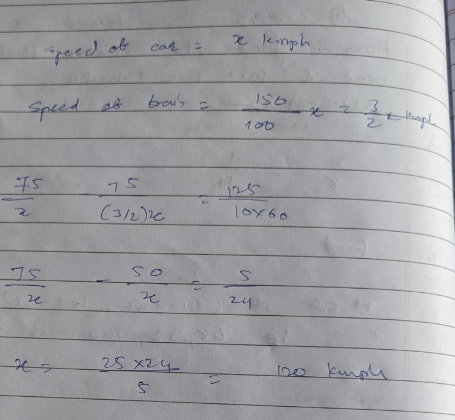 Speed of car = x kmph.
Speed of train = 150/100 x = 3/2 x kmph
75/x - 75/(3/2)x = 125/10×60
75/x - 50/x = 5/24
x = 25×24/5 = 120 kmph